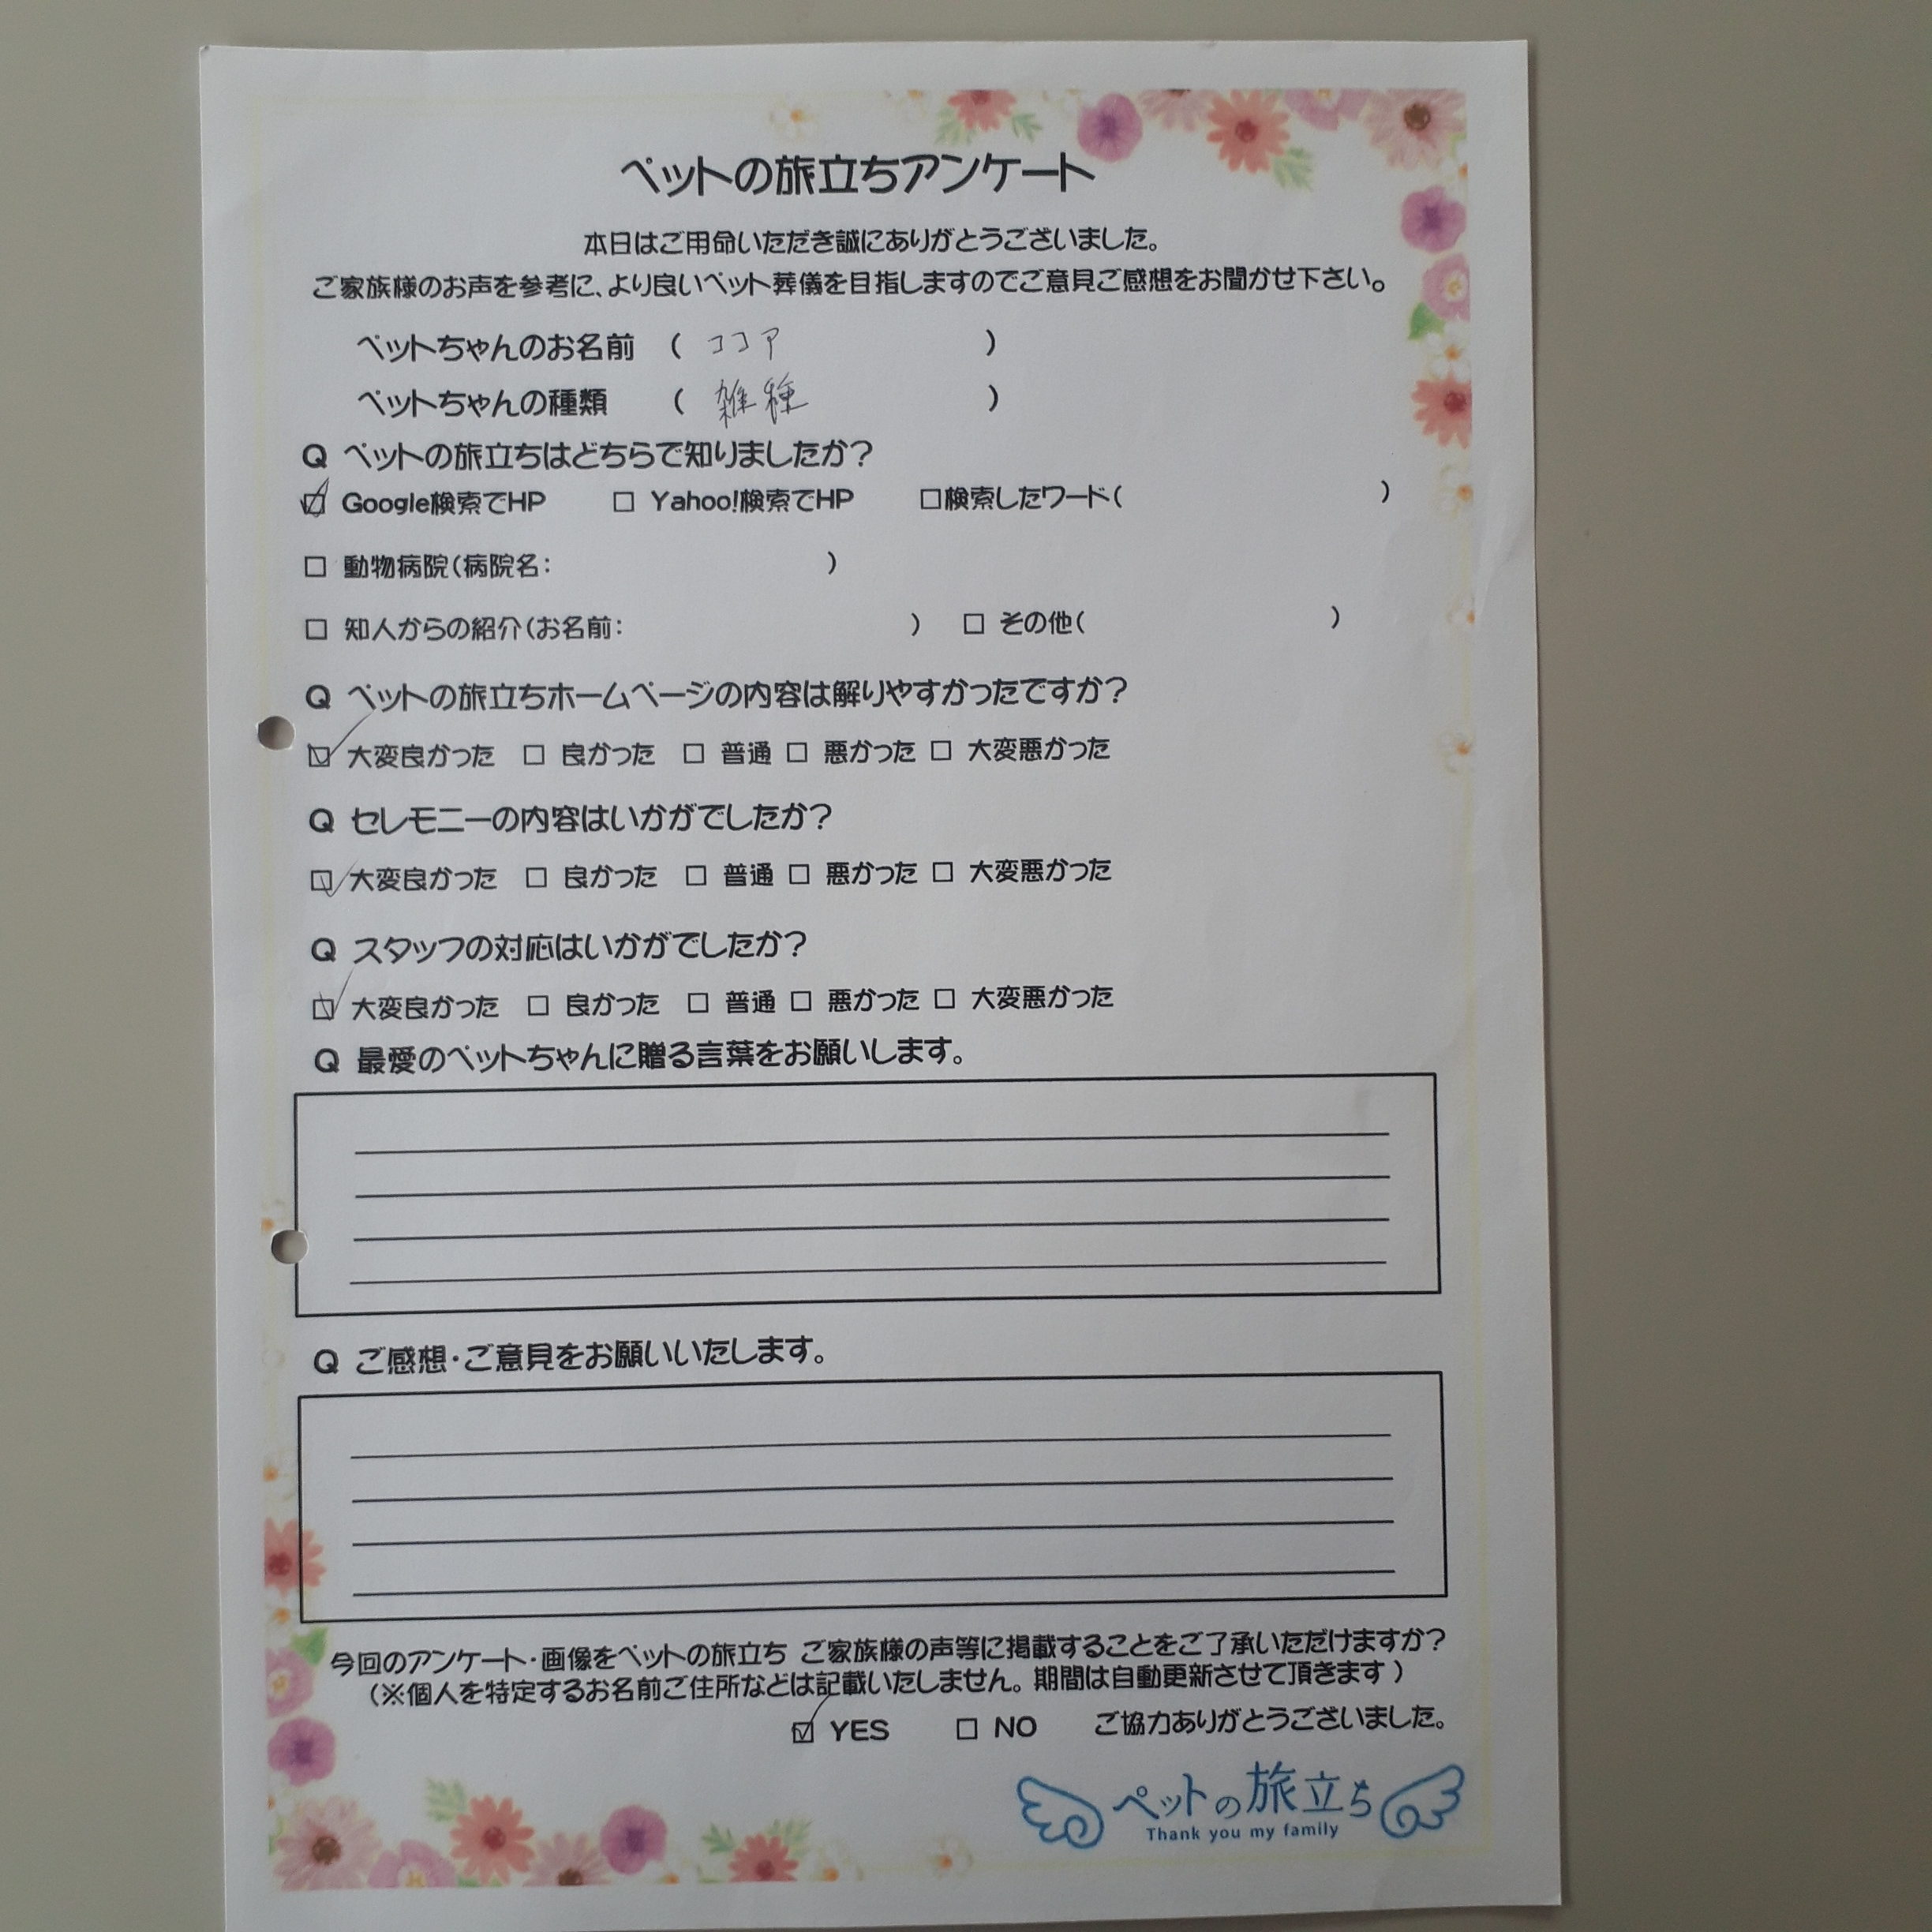 ペットの旅立ちアンケート
本日はご用命いただき誠にありがとうございました。
ご家族様のお声を参考に、より良いペット葬儀を目指しますのでご意見ご感想をお聞かせ下さい。
ペットちゃんのお名前 ( ココア )
ペットちゃんの種類 ( 雑種 )
Q ペットの旅立ちはどちらで知りましたか?
☑ Google検索でHP □ Yahoo!検索でHP □検索したワード( )
□ 動物病院(病院名: )
□ 知人からの紹介(お名前: ) □ その他( )
Q ペットの旅立ちホームページの内容は解りやすかったですか?
☑ 大変良かった □ 良かった □ 普通 □ 悪かった □ 大変悪かった
Q セレモニーの内容はいかがでしたか?
☑ 大変良かった □ 良かった □ 普通 □ 悪かった □ 大変悪かった
Q スタッフの対応はいかがでしたか?
☑ 大変良かった □ 良かった □ 普通 □ 悪かった □ 大変悪かった
Q 最愛のペットちゃんに贈る言葉をお願いします。
Q ご感想・ご意見をお願いいたします。
今回のアンケート・画像をペットの旅立ち ご家族様の声等に掲載することをご了承いただけますか?
(※個人を特定するお名前ご住所などは記載いたしません。期間は自動更新させて頂きます)
☑ YES □ NO ご協力ありがとうございました。
ペットの旅立ち
Thank you my family